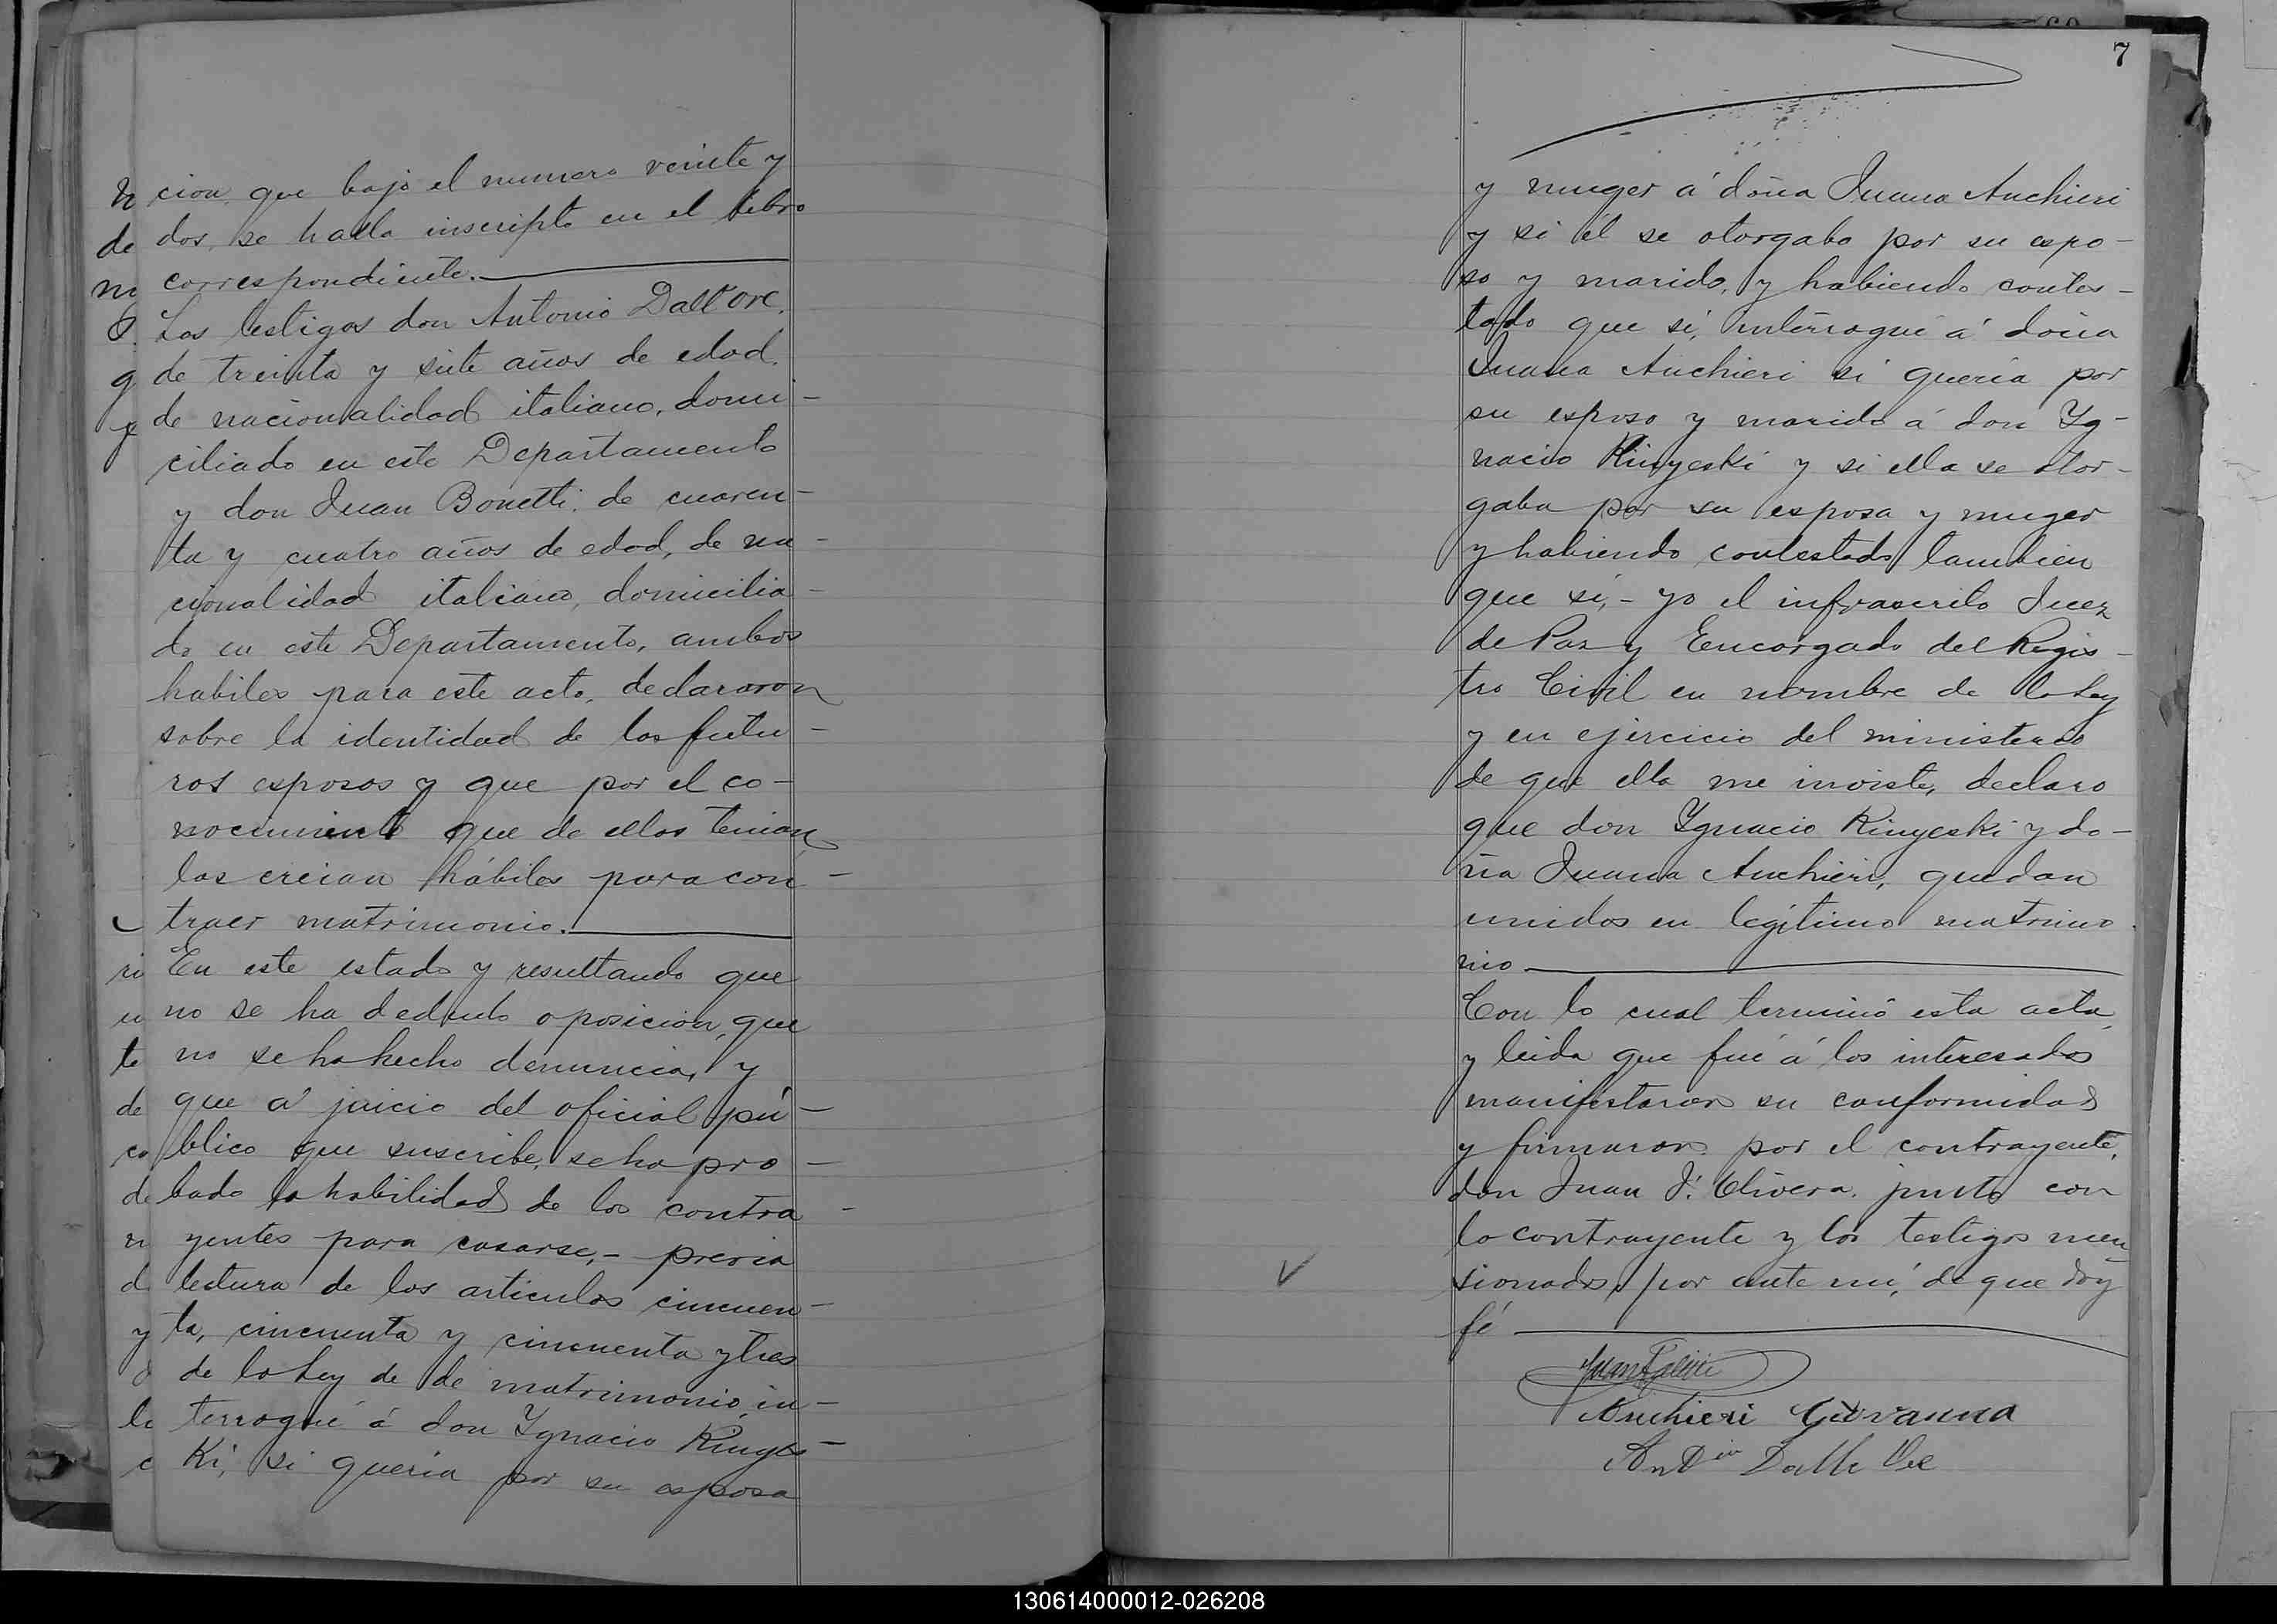 cion, que bajo el numero veinte y
dos, se halla inscripto en el libro
correspondiente.
Los testigos don Antonio Dall'ore,
de treinta y siete años de edad,
de nacionalidad italiano, domi-
ciliado en este Departamento
y don Juan Bonetti, de cuaren-
ta y cuatro años de edad, de na-
cionalidad italiano, domicilia-
do en este Departamento, ambos
habiles para este acto, declararon
sobre la identidad de los futu-
ros esposos y que por el co-
nocimiento que de ellos tenian,
los creian hábiles para con-
traer matrimonio.
En este estado y resultando que
no se ha deducido oposicion, que
no se ha hecho denuncia, y
que á juicio del oficial pú-
blico que suscribe, se ha pro-
bado la habilidad de los contra-
yentes para casarse,- previa
lectura de los articulos cincuen-
ta, cincuenta y cincuenta y tres
de la Ley de de matrimonio, in-
terrogué á don Ygnacio Kinyes-
Ki, si queria por su esposa
7
y muger á doña Juana Anchieri
y si él se otorgaba por su espo-
so y marido, y habiendo contes-
tado que si, interrogué á doña
Juana Anchieri si queria por
su esposo y marido á don Yg-
nacio Kinyeski y si ella se otor-
gaba por su esposa y muger
y habiendo contestado tambien
que si,- yo el infrascrito Juez
de Paz y Encargado del Regis-
tro Civil en nombre de la Ley
y en ejercicio del ministerio
de que ella me inviste, declaro
que don Ygnacio Kinyeski y do-
ña Juana Anchieri, quedan
unidos en legítimo matrimo
nio
Con lo cual terminó esta acta,
y leida que fué á los interesados
manifestaron su conformidad
y firmaron por el contrayente,
don Juan J. Olivera, junto con
la contrayente y los testigos men
sionados, por ante mi, de que doy
fé
Anchieri Giovanna
Ant^io Dalle Ore
130614000012-026208